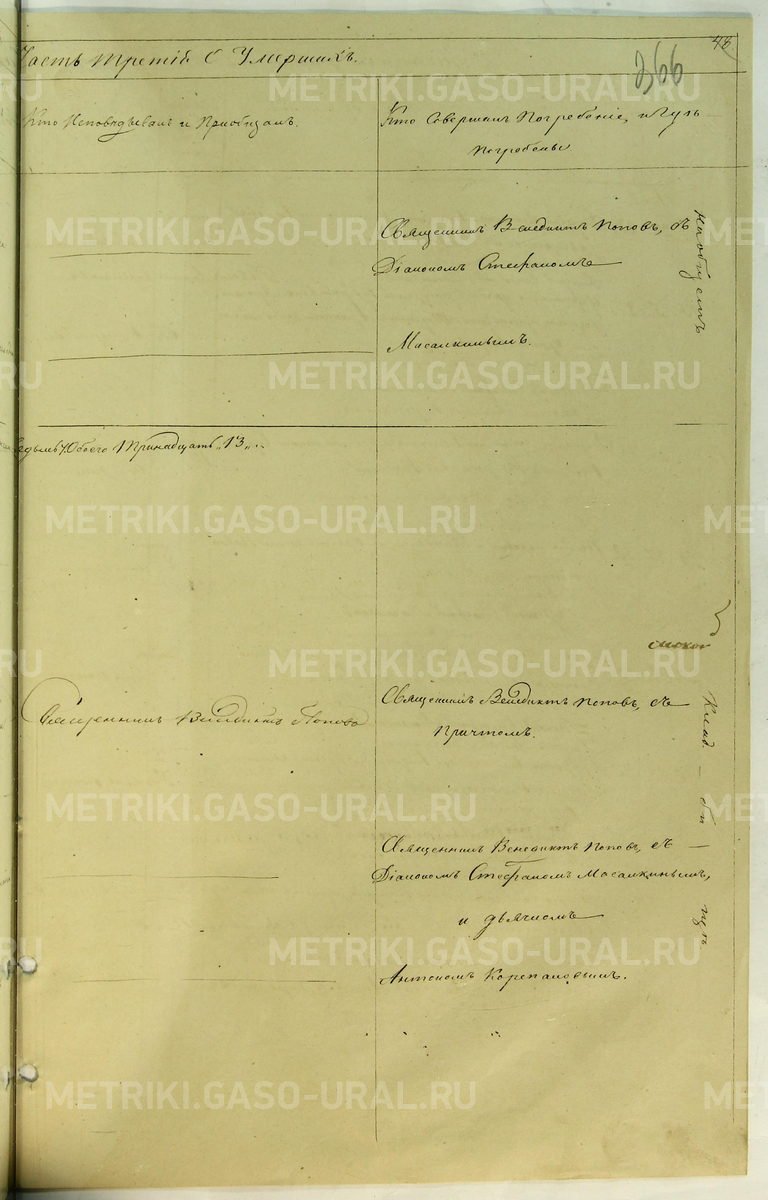 48.
366
Часть третія о Умершихъ.
Кто Исповѣдывалъ и Пріобщалъ.
Кто Совершалъ Погребеніе, и Гдѣ
погребены
Священникъ Венедиктъ Поповъ, съ
Діакономъ Стефаномъ
Масалкинымъ.
на общемъ
Обоего Тринадцать „13„
Священникъ Венедиктъ Поповъ
Священникъ Венедиктъ Поповъ, съ
Причтомъ.
Клад-би-
Священникъ Венедиктъ Поповъ, съ
Діакономъ Стефаномъ Масалкинымъ,
и дьячкомъ
Антономъ Корепановымъ.
METRIKI.GASO-URAL.RU